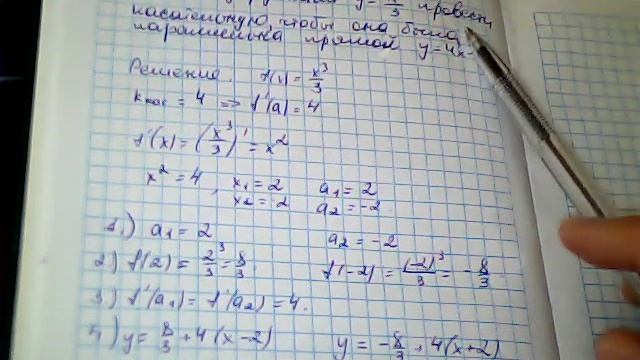 y = x³/3 провести
касательную, чтобы она была
параллельна прямой y=4x-
Решение. f(x) = x³/3
kкас = 4 => f'(a) = 4
f'(x) = (x³/3)' = x²
x² = 4, x₁ = 2 a₁ = 2
x₂ = -2 a₂ = -2.
1.) a₁ = 2 a₂ = -2
2) f(2) = 2³/3 = 8/3. f(-2) = (-2)³/3 = -8/3.
3) f'(a₁) = f'(a₂) = 4.
4) y = 8/3 + 4(x-2) y = -8/3 + 4(x+2)